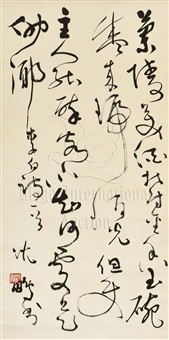 蘭陵美酒鬱金香玉碗
盛来琥珀光但使
主人能醉客不知何處是
他鄉 李白詩一首 沈鵬書